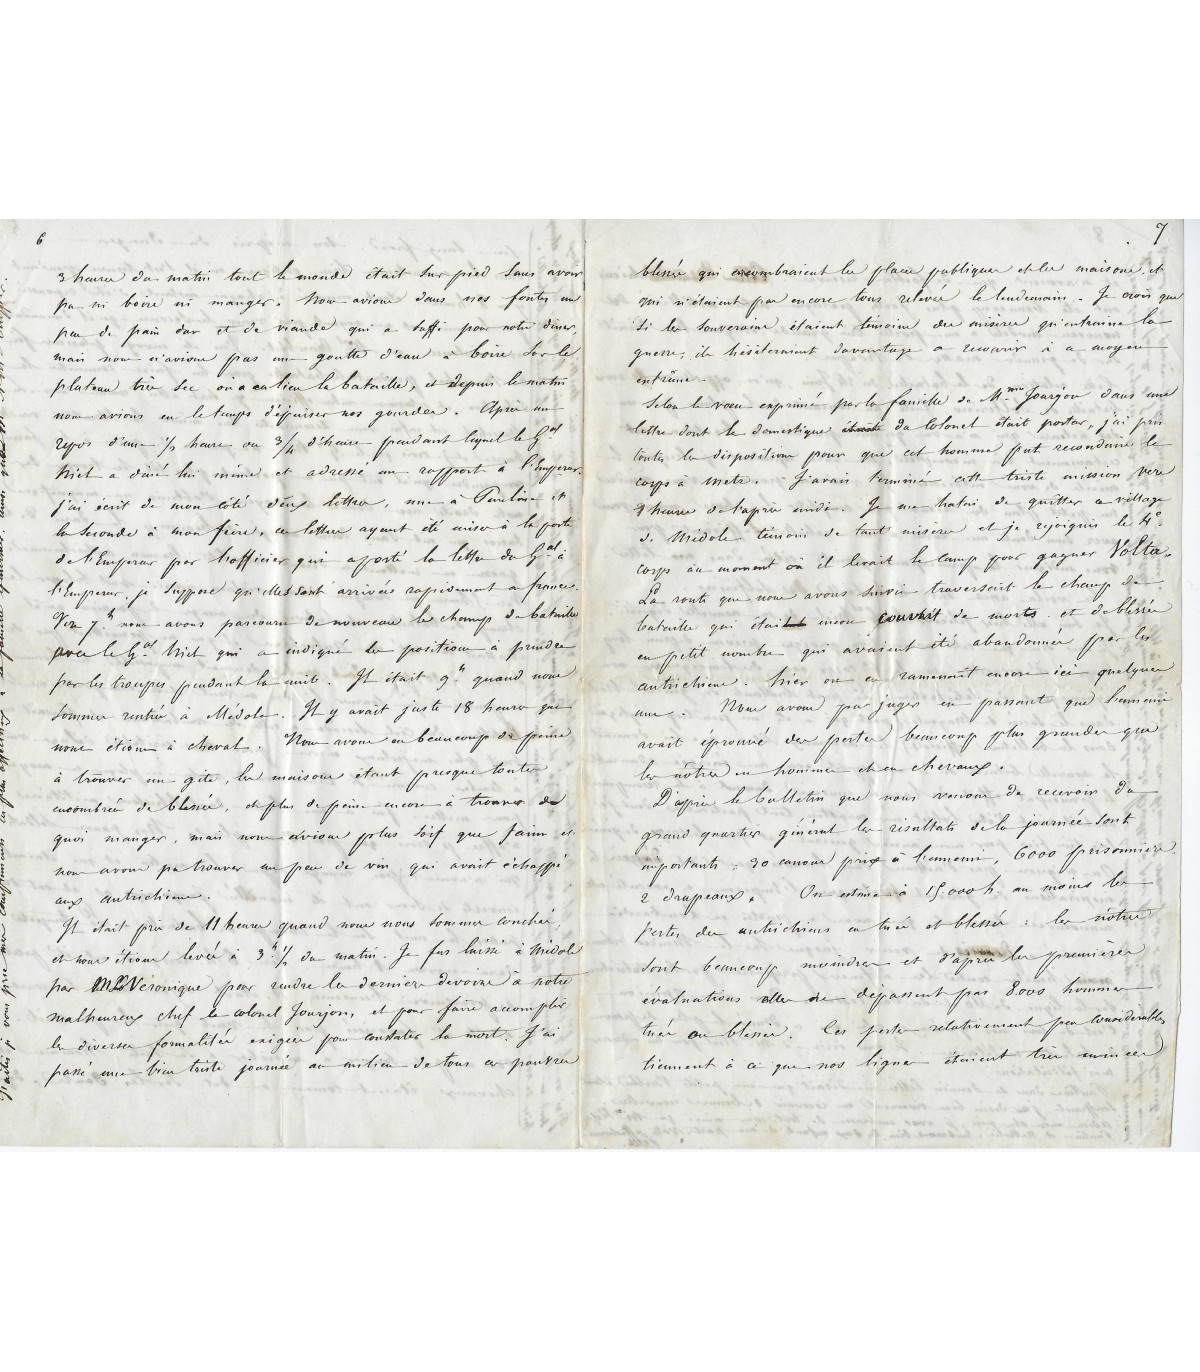 6
3 heures du matin tout le monde était sur pied sans avoir
pu ni boire ni manger. Nous avions dans nos fontes un
peu de pain dur et de viande qui a suffi pour notre diner,
mais nous n'avions pas une goutte d'eau à boire sur le
plateau très sec où a eu lieu la bataille, et depuis le matin
nous avions eu le temps d'épuiser nos gourdes. Après un
repos d'une 1/2 heure ou 3/4 d'heure pendant lequel le Gal
Niel a diné lui même et adressé un rapport à l'Empereur,
j'ai écrit de mon côté deux lettres, une à et
la seconde à mon frère, ces lettres ayant été mises à la poste
de l'Empereur par l'officier qui a porté la lettre du Gal à
l'Empereur, je suppose qu'elles sont arrivées rapidement en france.
Vers 7h nous avons parcouru de nouveau le champ de bataille
avec le Gal Niel qui a indiqué les positions à prendre
par les troupes pendant la nuit. Il était 9h quand nous
sommes rentrés à Médole. Il y avait juste 18 heures que
nous étions à cheval. Nous avons eu beaucoup de peine
à trouver un gîte, les maisons étant presque toutes
encombrées de blessés, et plus de peine encore à trouver de
quoi manger, mais nous avions plus soif que faim et
nous avons pu trouver un peu de vin qui avait échappé
aux autrichiens.
Il était près de 11 heures quand nous nous sommes couchés,
et nous étions levés à 3h 1/2 du matin. Je fus laissé à Médole
par Véronique pour rendre les derniers devoirs à notre
malheureux chef le colonel Jourjon, et pour faire accomplir
les diverses formalités exigées pour constater la mort. J'ai
passé une bien triste journée au milieu de tous ces pauvres
7
blessés qui encombraient les places publiques et les maisons, et
qui n'étaient pas encore tous relevés le lendemain. Je crois que
si les souverains étaient témoins des misères qu'entraine la
guerre, ils hésiteraient davantage à recourir à ce moyen
extrême.
Selon le vœu exprimé par la famille de Mme Jourjon dans une
lettre dont le domestique du Colonel était porteur, j'ai pris
toutes les dispositions pour que cet homme pût reconduire le
corps à Metz. J'avais terminé cette triste mission vers
heures de l'après midi. Je me hatai de quitter ce village
de Médole témoin de tant misère et je rejoignis le 4e
corps au moment où il levait le camp pour gagner Volta.
La route que nous avons suivie traversait le champ de
bataille qui était encore couvert de morts et de blessés
en petit nombre qui avaient été abandonnés par les
autrichiens. hier on en ramenait encore ici quelques
uns. Nous avons pu juger en passant que l'ennemi
avait éprouvé des pertes beaucoup plus grandes que
les nôtres en hommes et en chevaux.
D'après le bulletin que nous venons de recevoir du
grand quartier général les résultats de la journée sont
importants : 30 canons pris à l'ennemi, 6000 prisonniers
2 drapeaux. On estime à 15.000 h. au moins les
pertes des autrichiens en tués et blessés : les nôtres
sont beaucoup moindres et d'après les premières
évaluations elles ne dépassent pas 8.000 hommes
tués ou blessés. Ces pertes relativement peu considérables
tiennent à ce que nos lignes étaient très minces